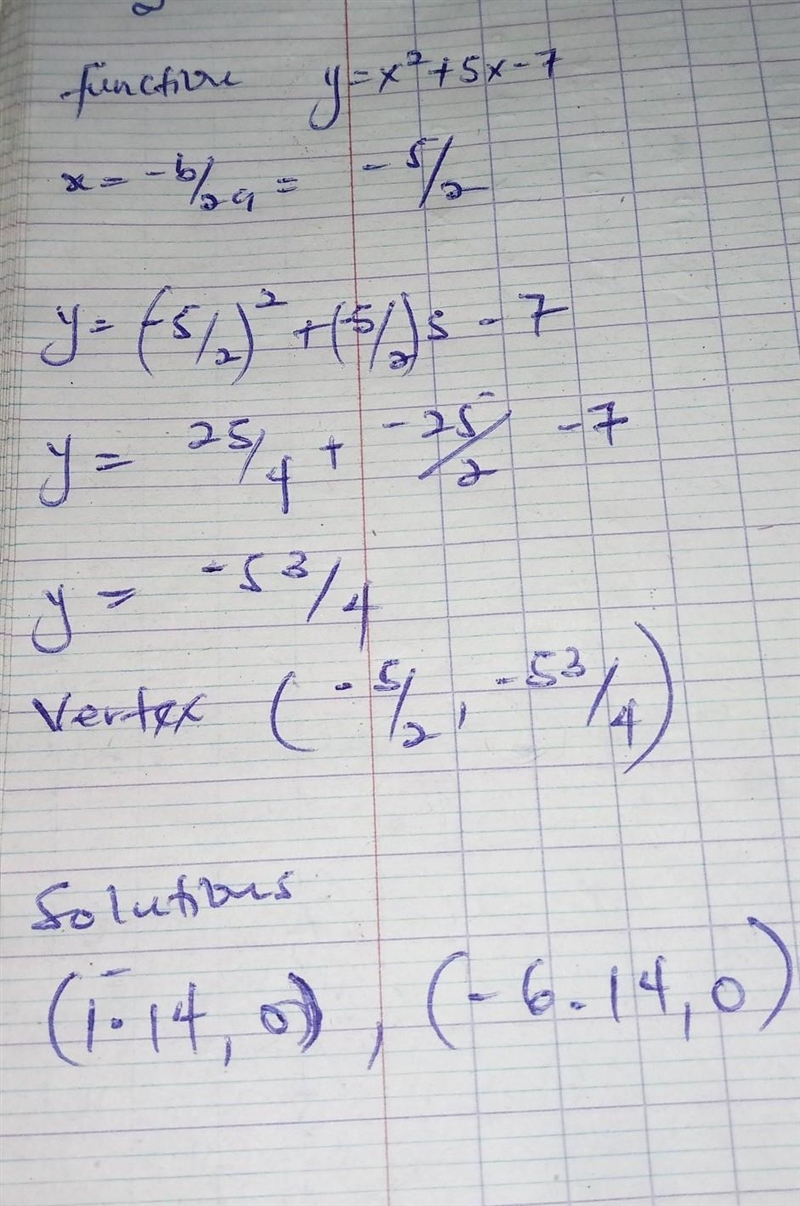 function y=x²+5x-7
x = -b/2a = -5/2
y= (-5/2)²+(-5/2)5 - 7
y= 25/4 + -25/2 -7
y= -53/4
Vertex (-5/2, -53/4)
Solutions
(1.14, 0), (-6.14, 0)